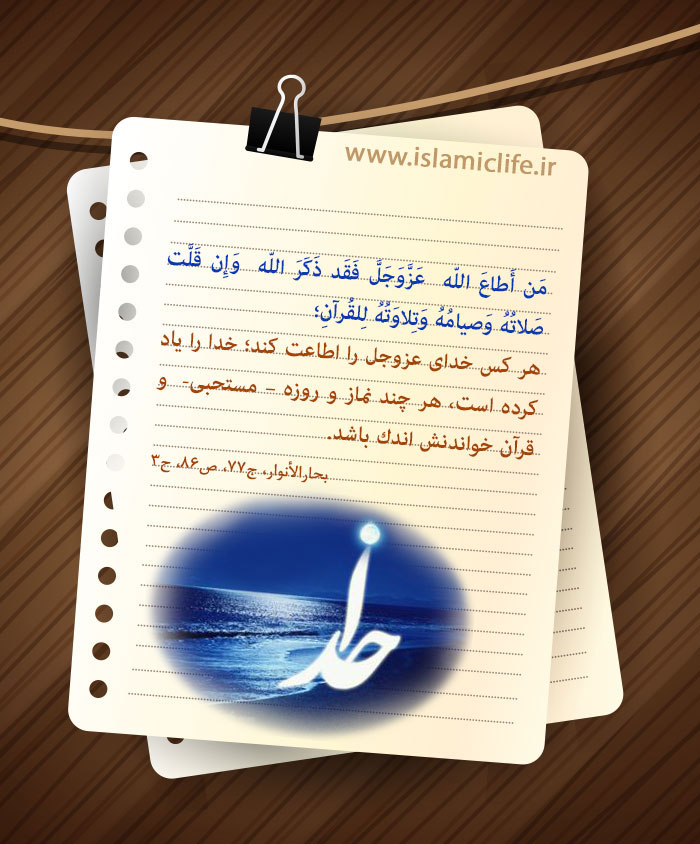 www.islamiclife.ir
مَن أَطاعَ اللّه عَزَّوَجَلَّ فَقَد ذَكَرَ اللّه وَإِن قَلَّت
صَلاتُهُ وَصيامُهُ وَتِلاوَتُهُ لِلقُرآنِ؛
هر كس خداى عزوجل را اطاعت كند؛ خدا را ياد
كرده است، هر چند نماز و روزه – مستحبى- و
قرآن خواندنش اندك باشد.
بحارالأنوار، ج۷۷، ص۸۶، ج۳
خدا